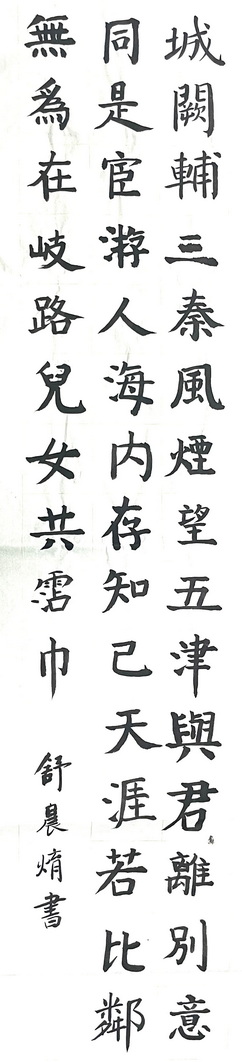 城闕輔三秦風煙望五津與君離別意
同是宦游人海内存知己天涯若比鄰
無爲在岐路兒女共霑巾
舒晨焴書